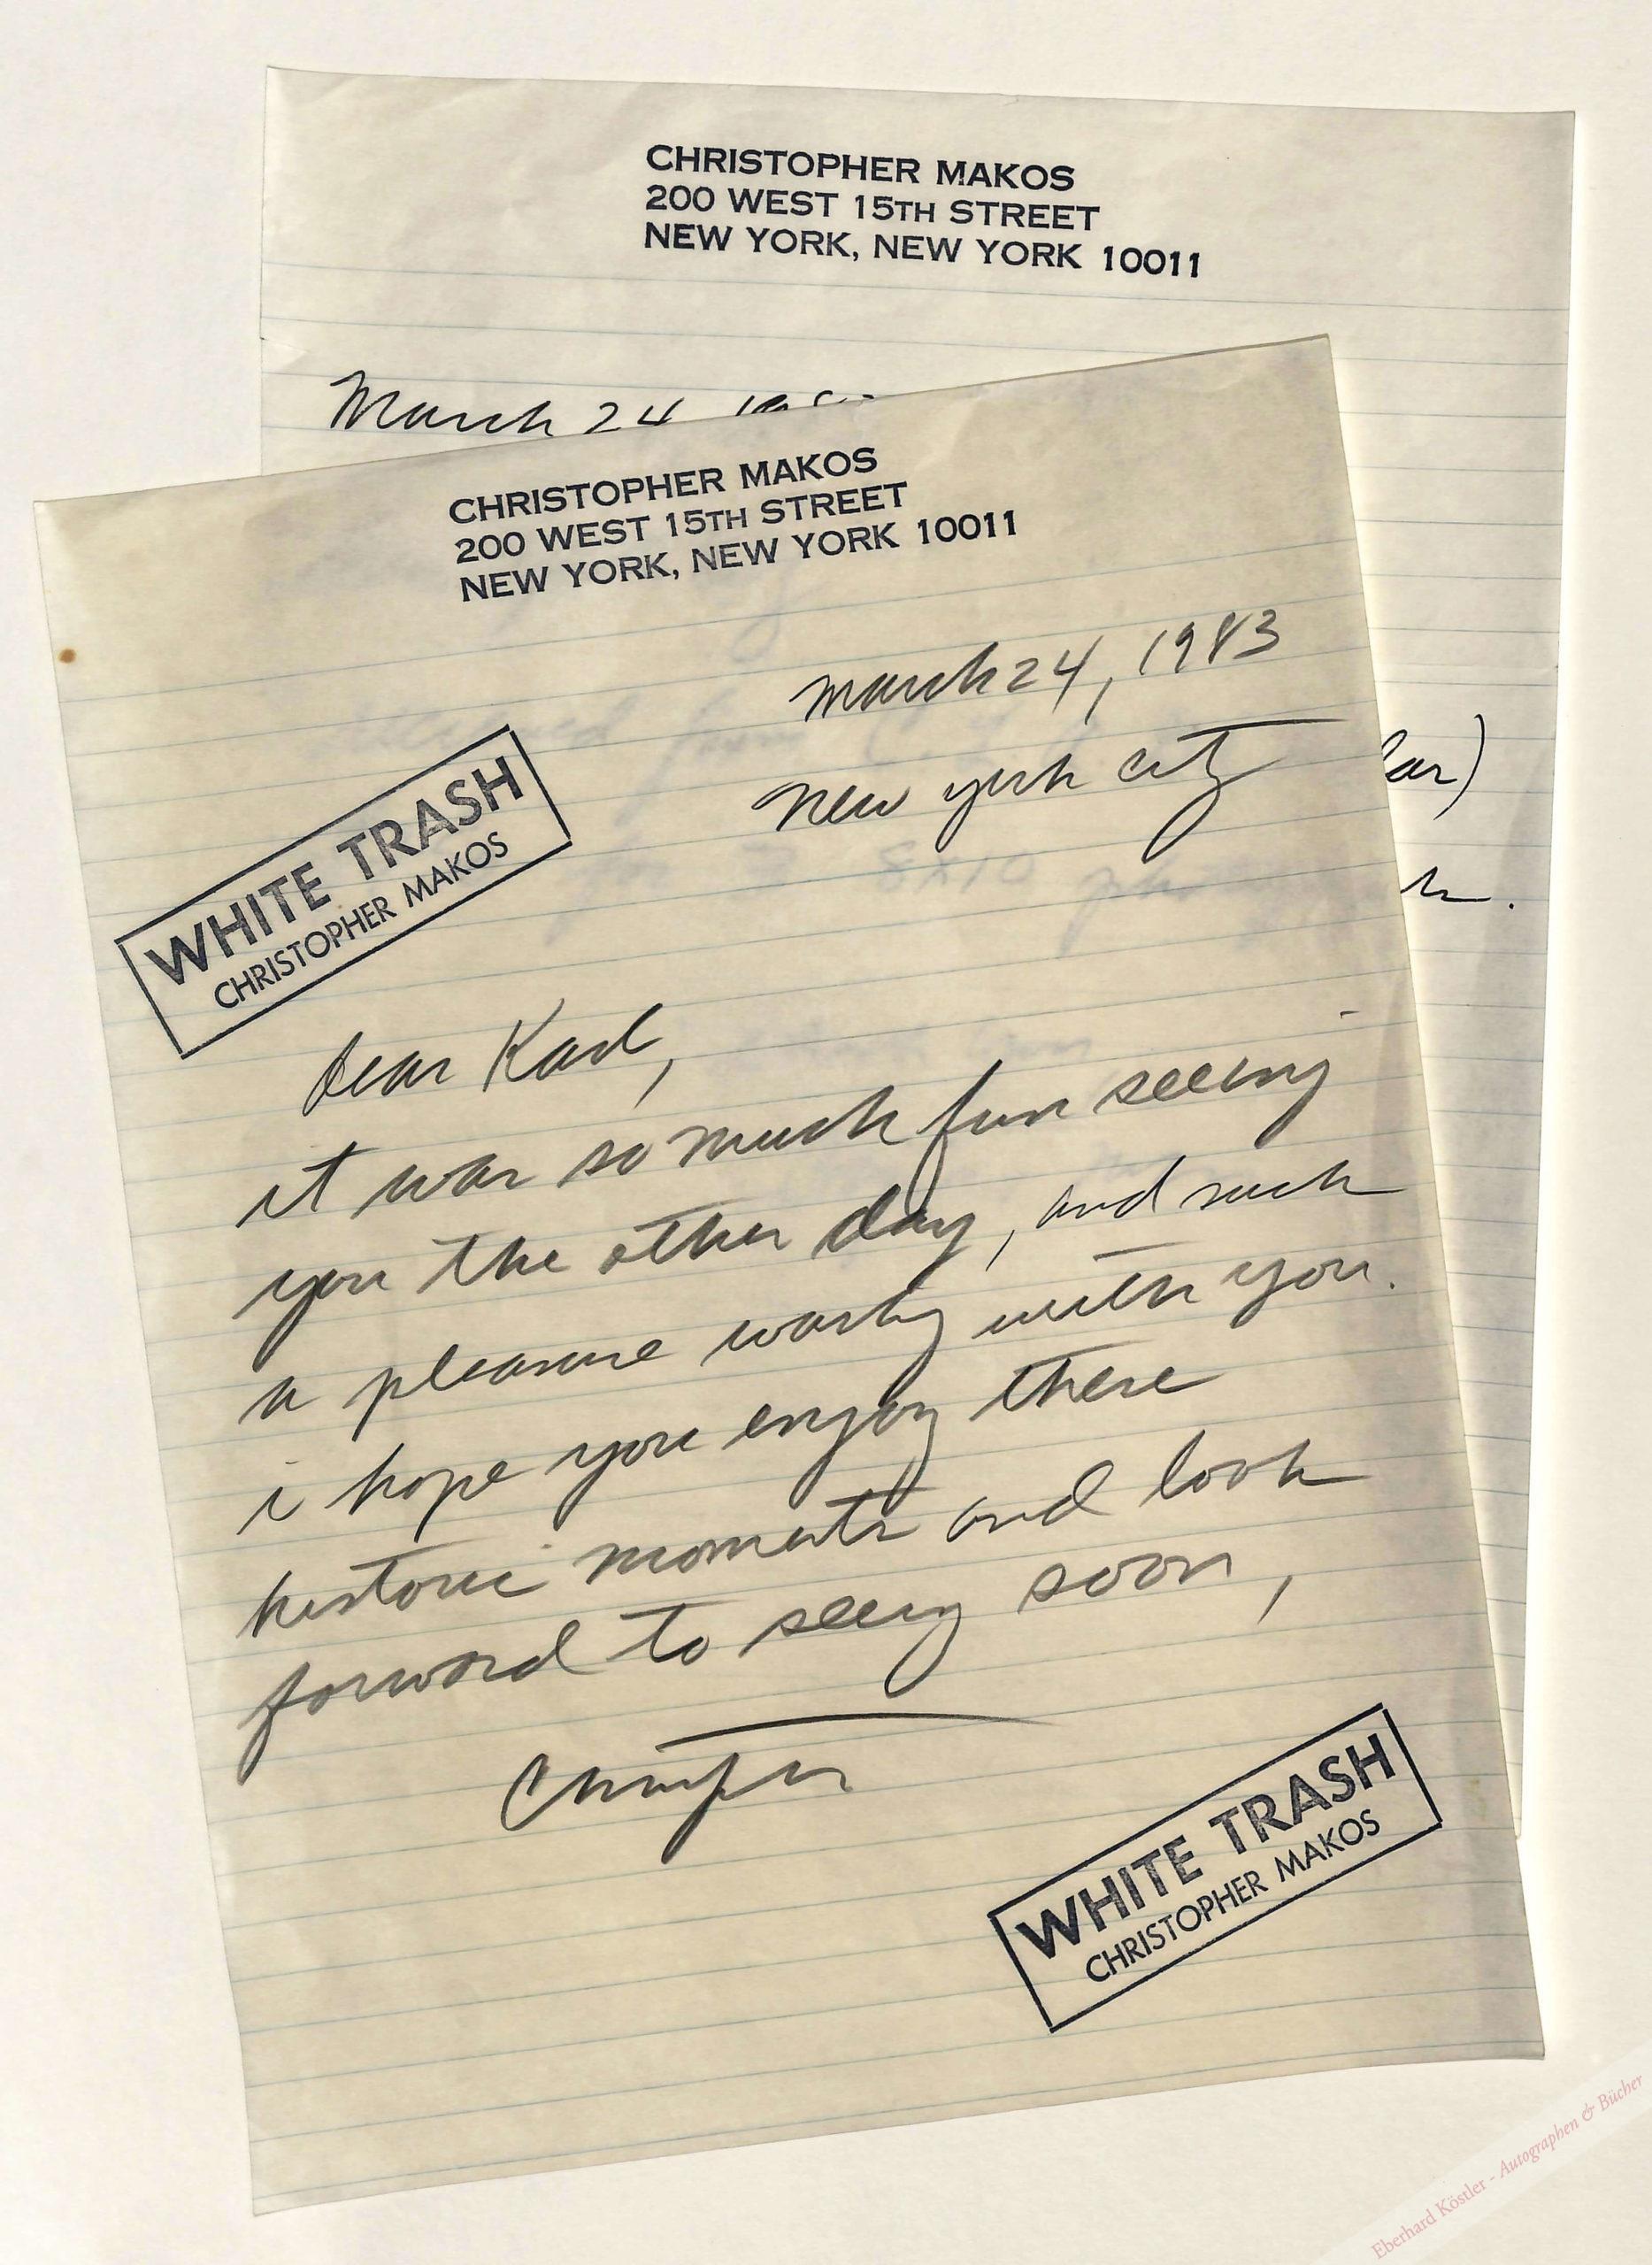 CHRISTOPHER MAKOS
200 WEST 15TH STREET
NEW YORK, NEW YORK 10011
March 24
CHRISTOPHER MAKOS
200 WEST 15TH STREET
NEW YORK, NEW YORK 10011
march 24, 1983
new york city
WHITE TRASH
CHRISTOPHER MAKOS
dear Karl,
it was so much fun seeing
you the other day, and such
a pleasure working with you.
i hope you enjoy these
historic moments and look
forward to seeing soon,
Christopher
WHITE TRASH
CHRISTOPHER MAKOS
Eberhard Köstler - Autographen & Bücher